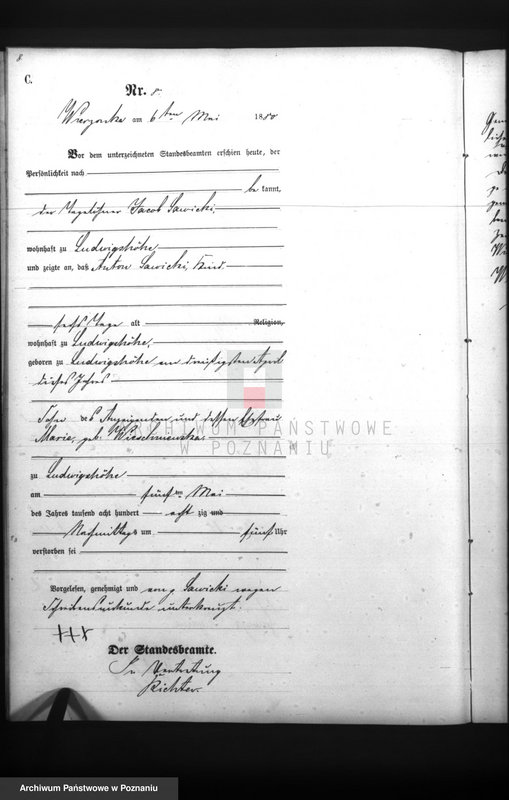 8.
C.
Nr. 8.
Wierzonka am 6ten Mai 1880
Vor dem unterzeichneten Standesbeamten erschien heute, der
Persönlichkeit nach
be kannt,
der Tagelöhner Jacob Sawicki,
wohnhaft zu Ludwigshöhe
und zeigte an, daß Anton Sawicki, Kind
sechs Tage alt Religion,
wohnhaft zu Ludwigshöhe,
geboren zu Ludwigshöhe am dreißigsten April
dieses Jahres
Sohn des Anzeigenden und dessen Ehefrau
Marie, geb.
zu Ludwigshöhe
am fünften Mai
des Jahres tausend acht hundert acht zig und
Nachmittags um fünf Uhr
verstorben sei
Vorgelesen, genehmigt und von Sawicki wegen
Schreibensunkunde unterkreuzt.
+++
Der Standesbeamte.
In Vertretung
Richter.
ARCHIWUM PAŃSTWOWE
W POZNANIU
Archiwum Państwowe w Poznaniu